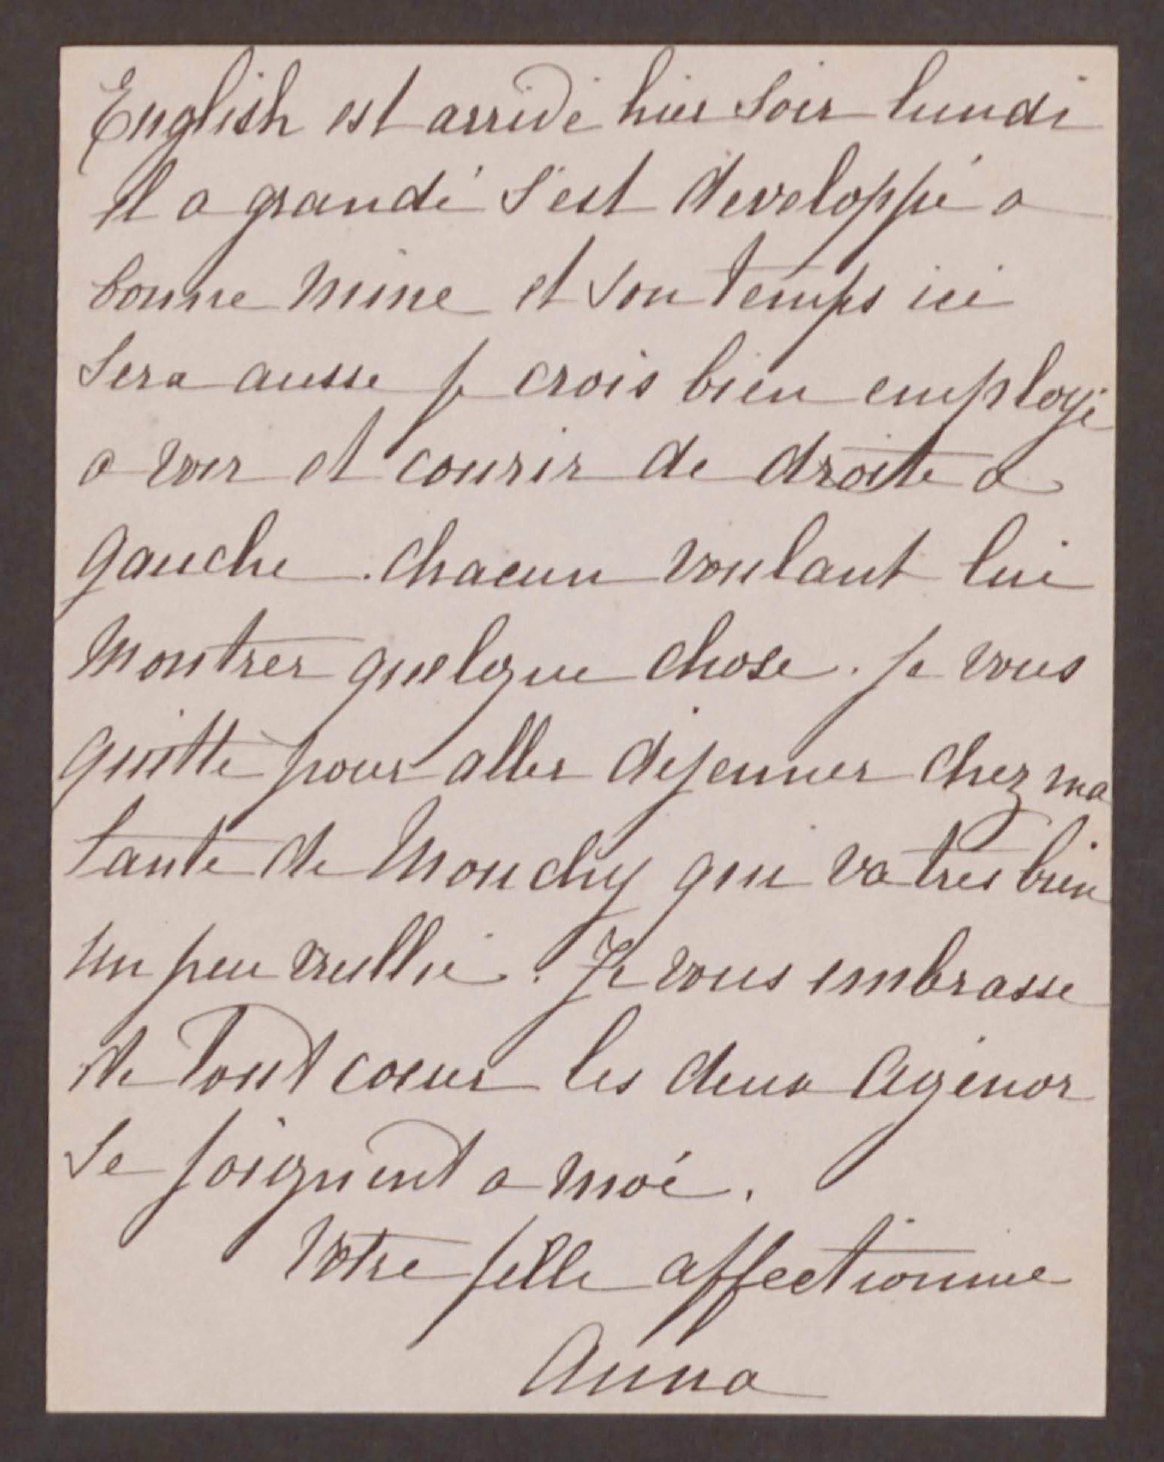 English est arrivé hier soir lundi
Il a grandi s'est developpé a
bonne mine et son temps ici
sera aussi je crois bien employé
a voir et courir de droite a
gauche. chacun voulant lui
montrer quelque chose. je vous
quitte pour aller dejeuner chez ma
tante de Mouchy qui va tres bien
un peu vieillie. Je vous embrasse
de Tout coeur les deux Agenor
se joignent a moi.
Votre fille affectionnee
Anna